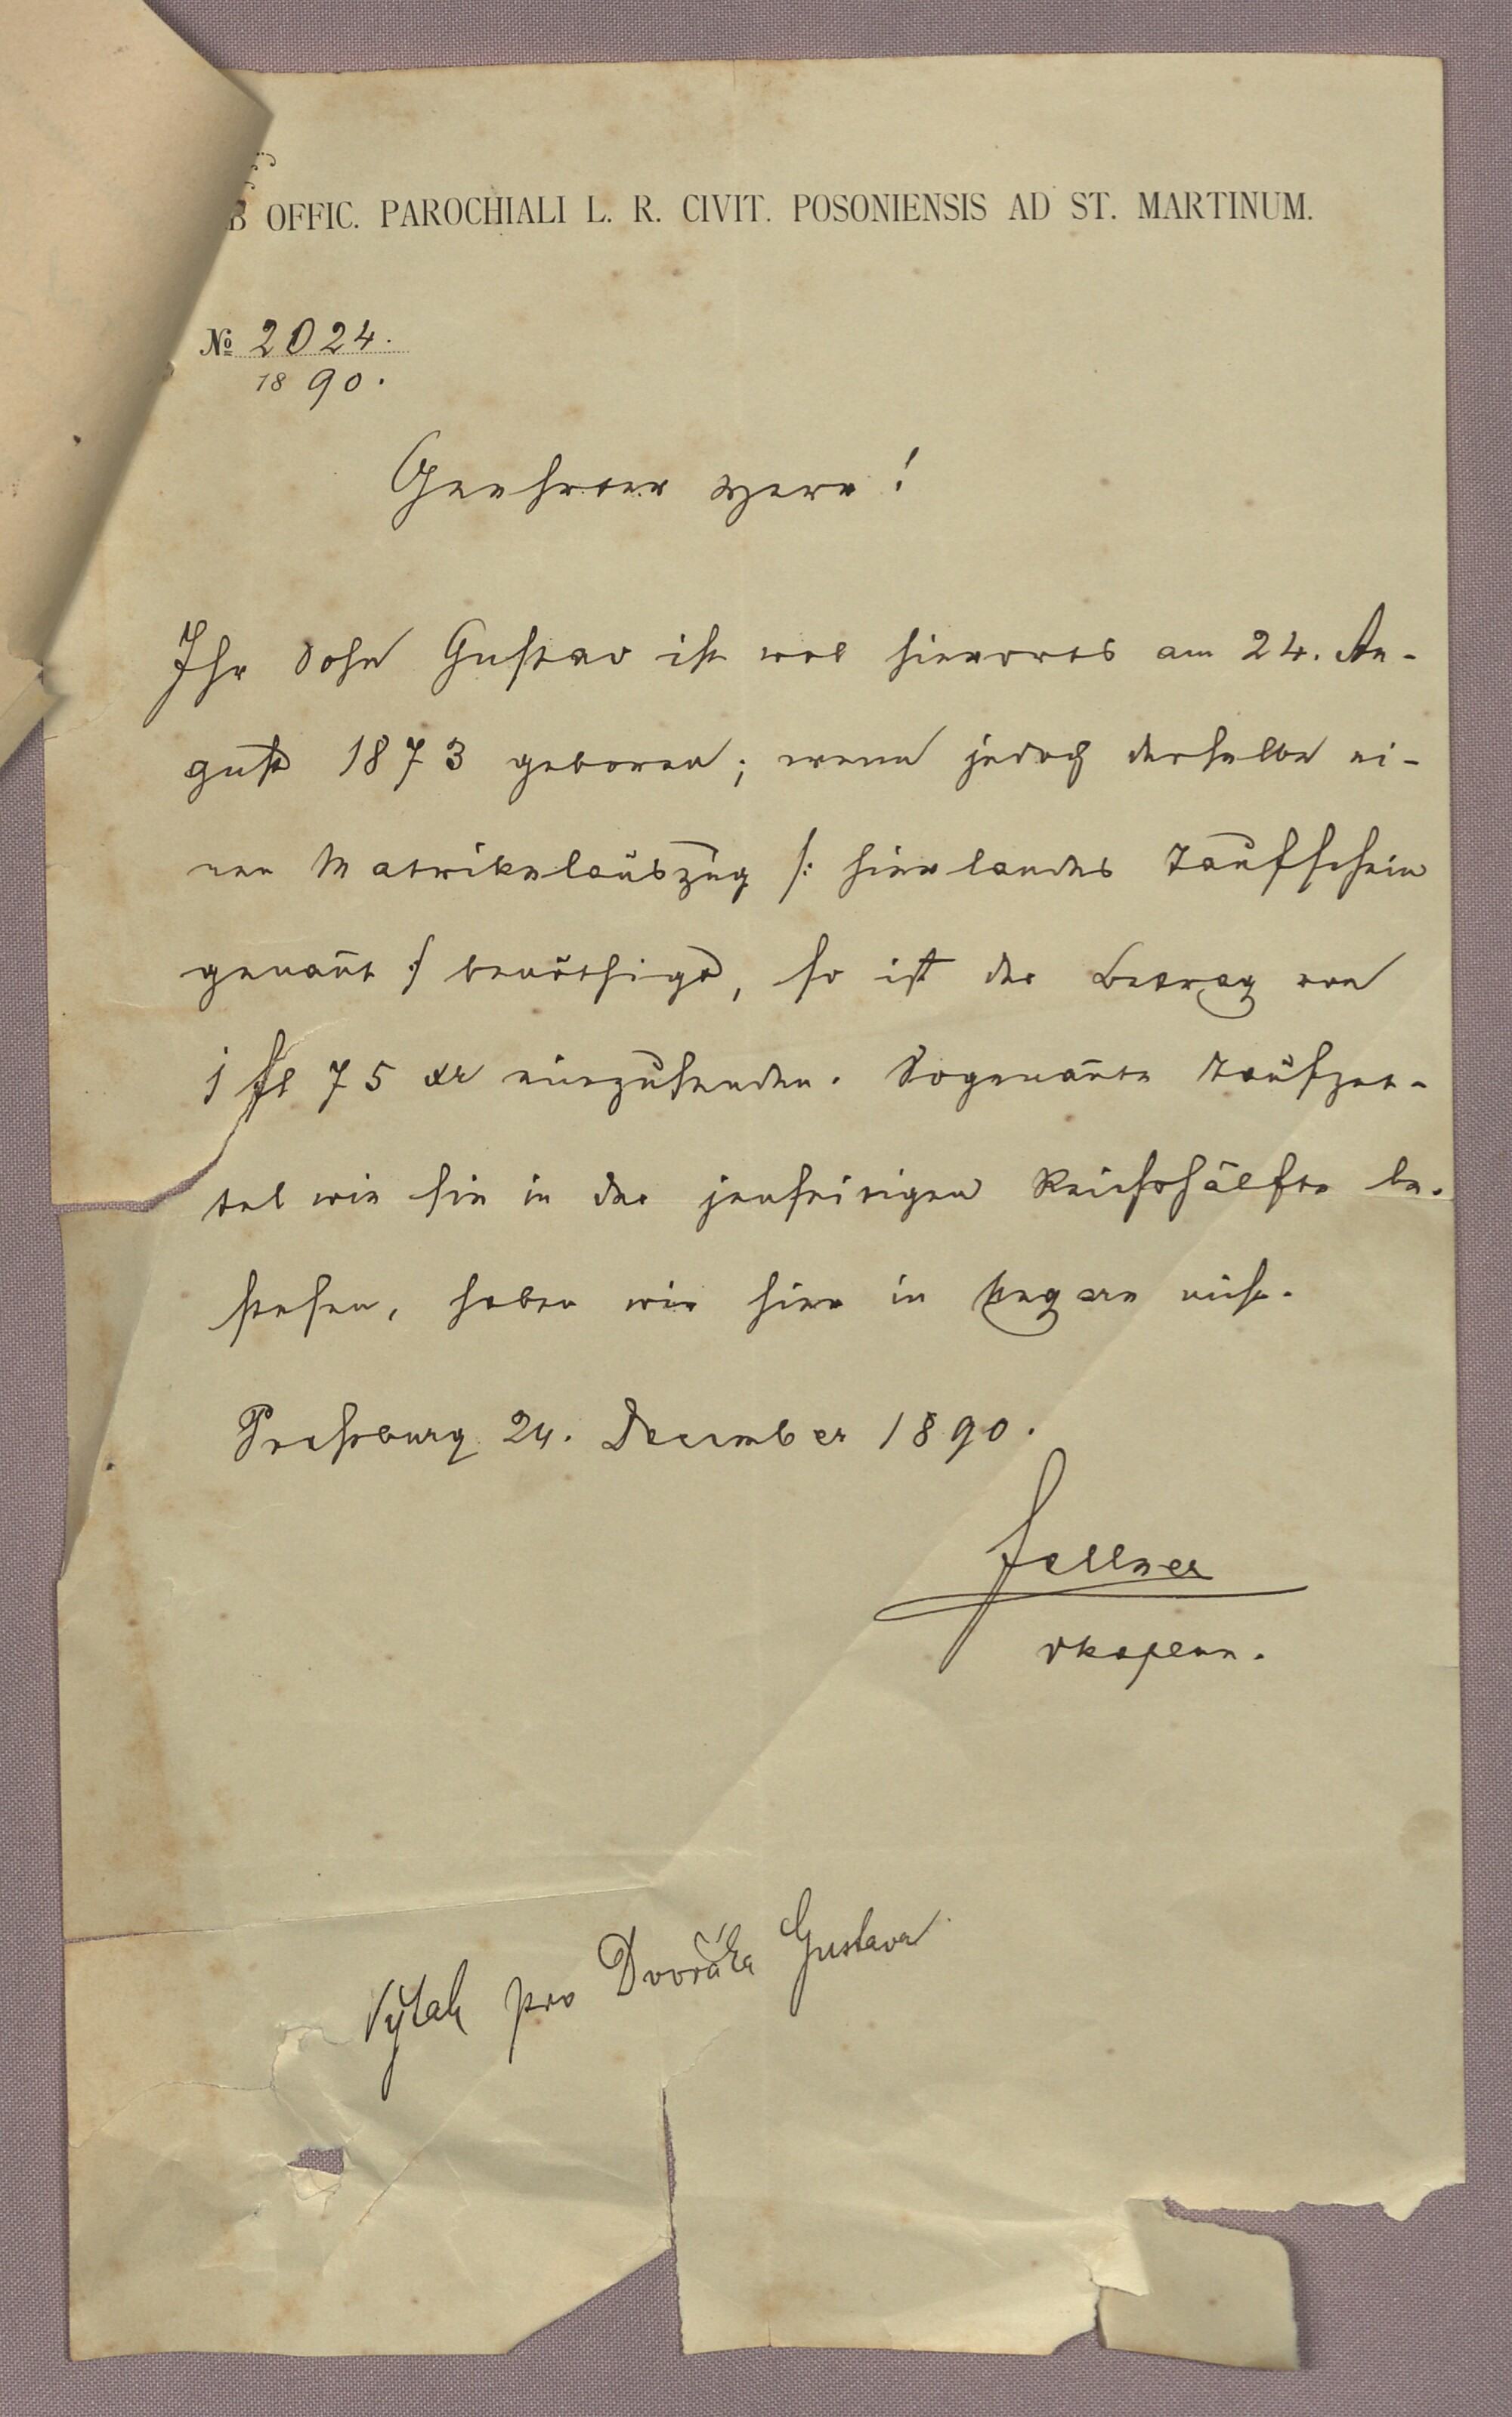 B OFFIC. PAROCHIALI L. R. CIVIT. POSONIENSIS AD ST. MARTINUM.
№ 2024.
1890.
Geehrter Herr!
Ihr Sohn Gustav ist wol hierorts am 24. Au-
gust 1873 geboren; wenn jedoch derselbe ei-
nen Matrikelauszug /: hierlandes Taufschein
genannt :/ benöthigt, so ist der Betrag von
1 fl 75 xr einzusenden. Sogenannte Taufzet-
tel wie sie in der jenseitigen Reichshälfte be-
stehen, haben wir hier in Ungarn nicht.
Pressburg 24. December 1890.
Fellner
Výtah pro Dvořáka Gustava